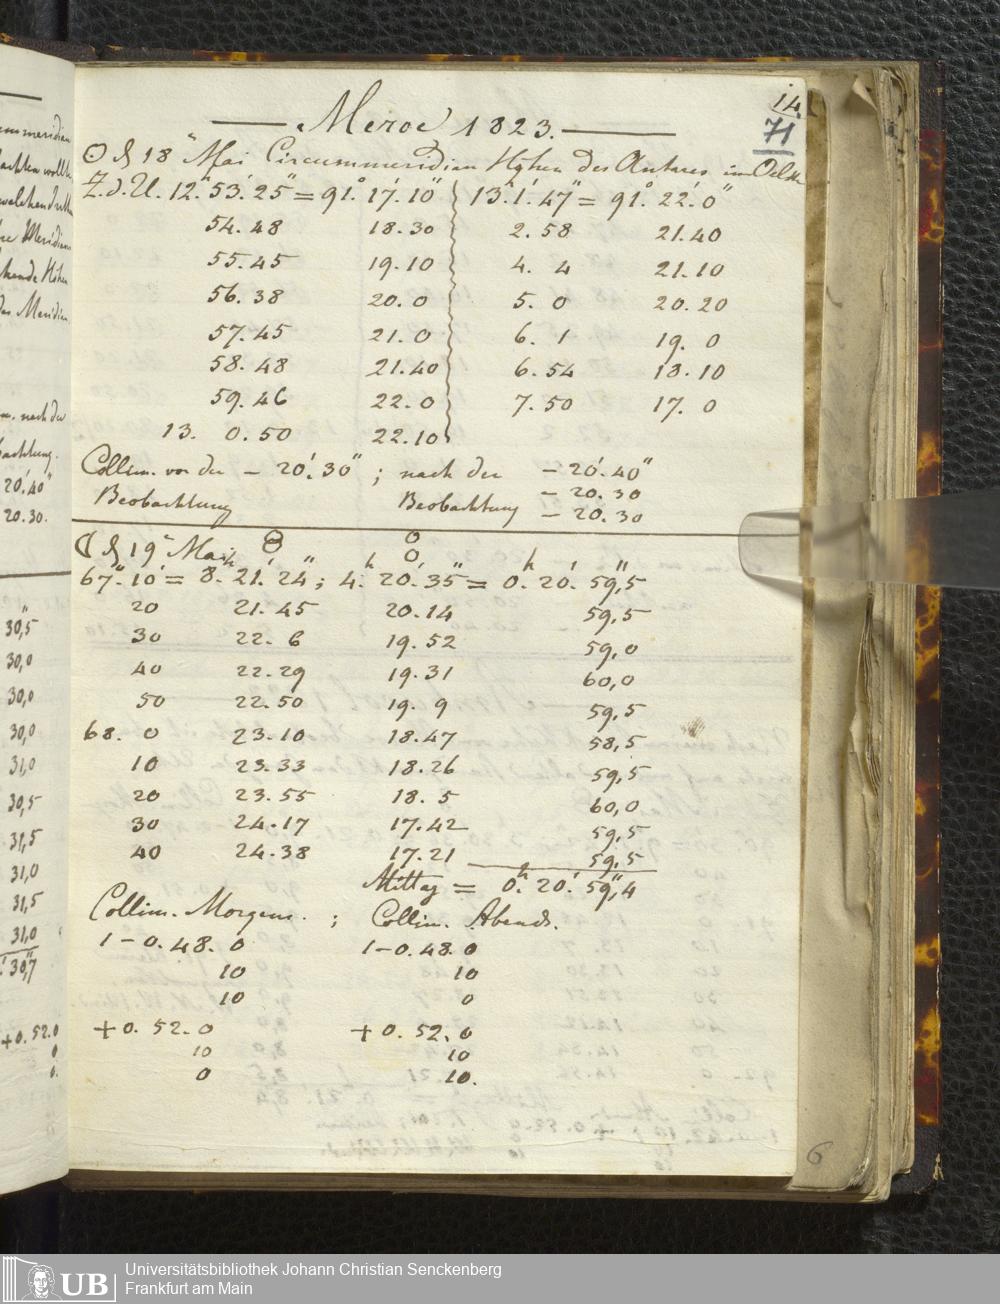 14.
71
Meroe 1823.
☉ d 18n Mai Circummeridian Höhen des Antares im Oelh
Z. d. U. 12h. 53'. 25" = 91°. 17'. 10" 13h. 1'. 47" = 91°. 22'. 0"
54. 48 18. 30 2. 58 21. 40
55. 45 19. 10 4. 4 21. 10
56. 38 20. 0 5. 0 20. 20
57. 45 21. 0 6. 1 19. 0
58. 48 21. 40 6. 54 18. 10
59. 46 22. 0 7. 50 17. 0
13. 0. 50 22. 10
Collim. vor der – 20'. 30" ; nach der – 20'. 40"
Beobachtung Beobachtung – 20. 30
– 20. 30
☾ d 19n Mai
67°. 10' = 8h. 21'. 24"; 4h. 20'. 35" = 0h. 20'. 59",5
20 21. 45 20. 14 59,5
30 22. 6 19. 52 59,0
40 22. 29 19. 31 60,0
50 22. 50 19. 9 59,5
68. 0 23. 10 18. 47 58,5
10 23. 33 18. 26 59,5
20 23. 55 18. 5 60,0
30 24. 17 17. 42 59,5
40 24. 38 17. 21 59,5
Mittag = 0h. 20'. 59",4
Collim. Morgens. ; Collim. Abends.
1 – 0. 48. 0 1 – 0. 48. 0
10 10
10 0
+ 0. 52. 0 + 0. 52. 0
10 10
0 10.
6
achten wollte
Meridian
Höhen
nach der
20'. 40"
20. 30.
30,5
30,0
30,0
30,0
31,0
30,5
31,5
31,0
31,5
31,0
30",7
+0. 52. 0
0
0.
UB
Universitätsbibliothek Johann Christian Senckenberg
Frankfurt am Main